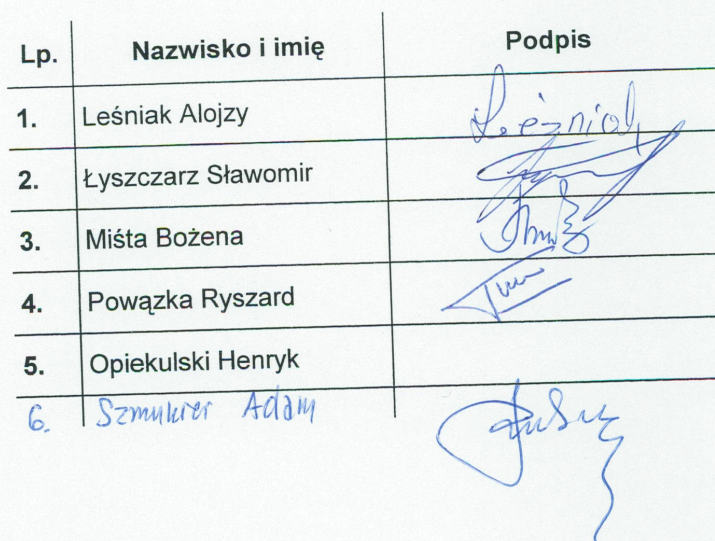 Lp. Nazwisko i imię Podpis
1. Leśniak Alojzy Leśniak
2. Łyszczarz Sławomir
3. Miśta Bożena
4. Powązka Ryszard
5. Opiekulski Henryk
6. Szmukier Adam